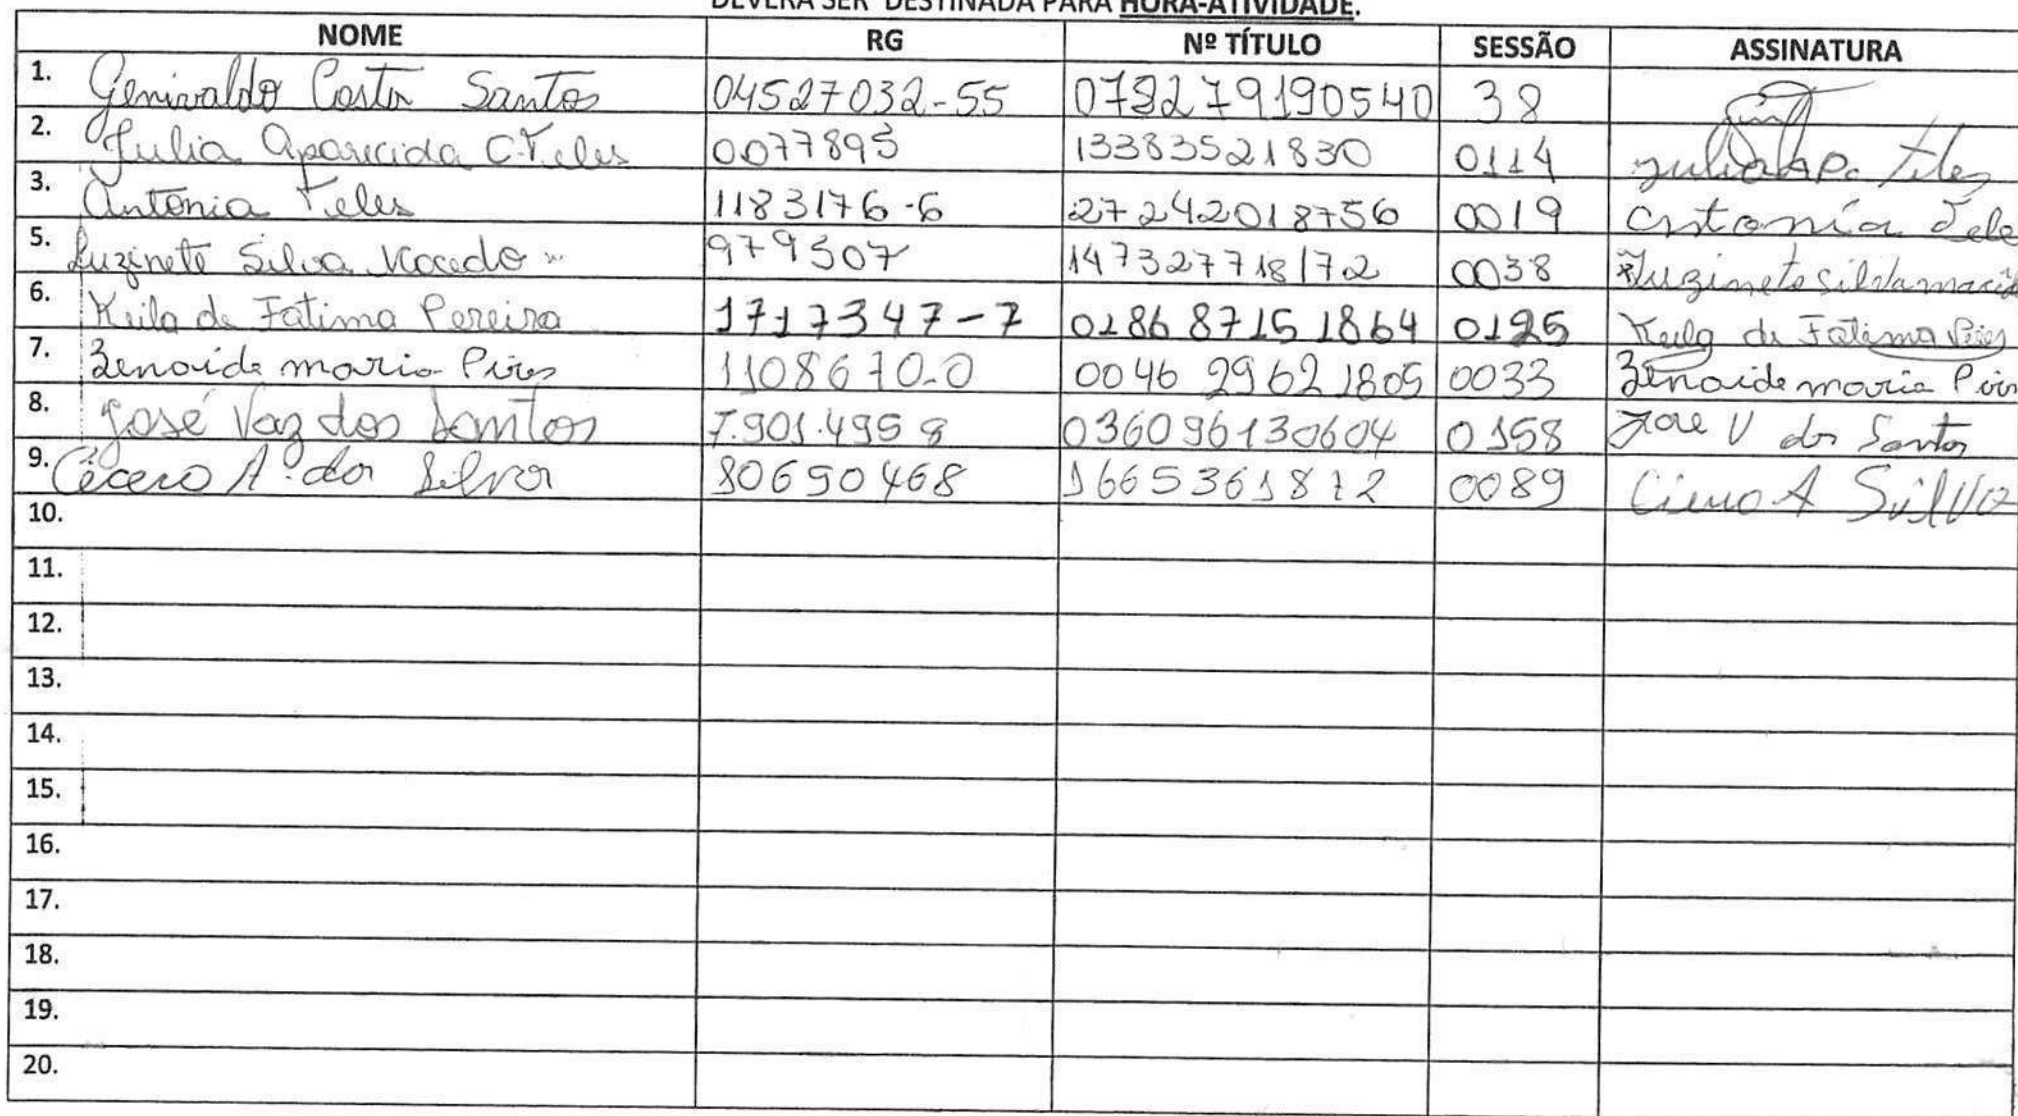 DEVERÁ SER DESTINADA PARA HORA-ATIVIDADE.
NOME RG Nº TÍTULO SESSÃO ASSINATURA
1. Genivaldo Costa Santos 04527032-55 38
2. Julia Aparecida C. Teles 0077895 13383521830 0114 Julia Ap. Teles
3. Antonia Teles 1183176-6 272422018756 0019 Antonia Tele
5. Luzinete Silva Macedo 979507 147327718172 0038 Luzinete silva
6. Keila de Fatima Pereira 1717347-7 0186 8715 1864 0125 Keila de Fatima Pires
7. Zenaide maria Pires 1108670-0 0046 2962 1805 0033 Zenaide maria Pires
8. José Vaz dos Santos 7.901.495 8 036096130604 0158 Jose V dos Santos
9. Cicero A. da Silva 80690468 166536181872 0089 Cicero A Silva
10.
11.
12.
13.
14.
15.
16.
17.
18.
19.
20.